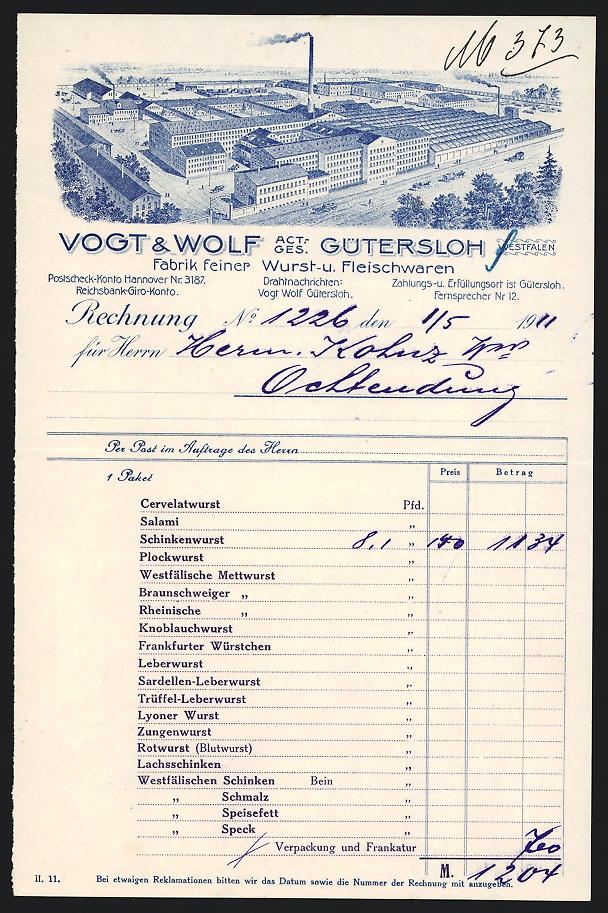 M 373
VOGT & WOLF ACT.- GES. GÜTERSLOH WESTFALEN
Fabrik feiner Wurst-u. Fleischwaren
Postscheck-Konto Hannover Nr. 3187. Drahtnachrichten: Zahlungs-u. Erfüllungsort ist Gütersloh.
Reichsbank-Giro-Konto. Vogt Wolf Gütersloh. Fernsprecher Nr 12.
Rechnung No. 1226 den 1/5 1911
für Herrn Herm. Kohnz
Ochtendung
Per Post im Auftrage des Herrn
1 Paket Preis Betrag
Cervelatwurst Pfd.
Salami „
Schinkenwurst 8,1 „ 140 11 34
Plockwurst „
Westfälische Mettwurst „
Braunschweiger „ „
Rheinische „ „
Knoblauchwurst „
Frankfurter Würstchen „
Leberwurst „
Sardellen-Leberwurst „
Trüffel-Leberwurst „
Lyoner Wurst „
Zungenwurst „
Rotwurst (Blutwurst) „
Lachsschinken „
Westfälischen Schinken Bein „
„ Schmalz „
„ Speisefett „
„ Speck „
Verpackung und Frankatur 70
M. 12 04
II. 11. Bei etwaigen Reklamationen bitten wir das Datum sowie die Nummer der Rechnung mit anzugeben.